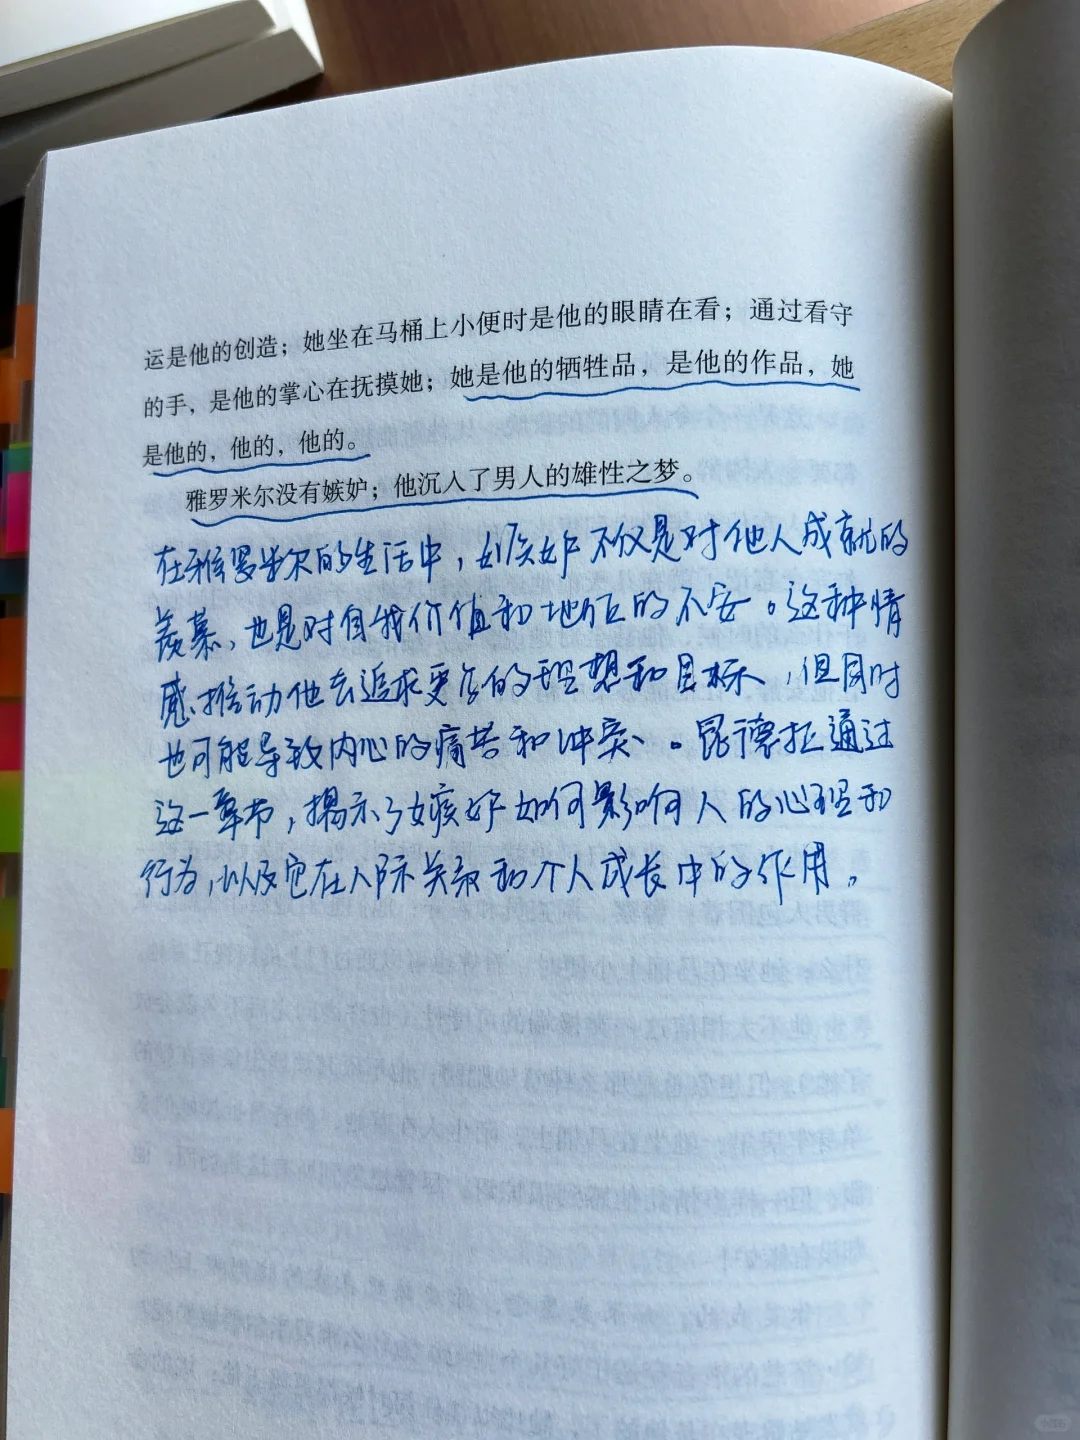 运是他的创造；她坐在马桶上小便时是他的眼睛在看；通过看守
的手，是他的掌心在抚摸她；她是他的牺牲品，是他的作品，她
是他的，他的，他的。
雅罗米尔没有嫉妒；他沉入了男人的雄性之梦。
在雅罗米尔的生活中，嫉妒不仅是对他人成就的
羡慕，也是对自我价值和地位的不安。这种情
感推动他去追求更多的理想和目标，但同时
也可能导致内心的痛苦和冲突。昆德拉通过
这一章节，揭示了嫉妒如何影响人的心理和
行为，以及它在人际关系和个人成长中的作用。